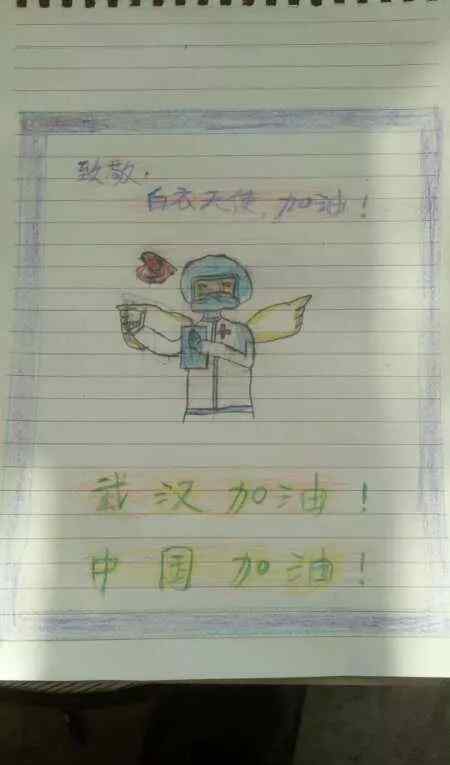 致敬.
白衣天使,加油!
武汉加油!
中国加油!